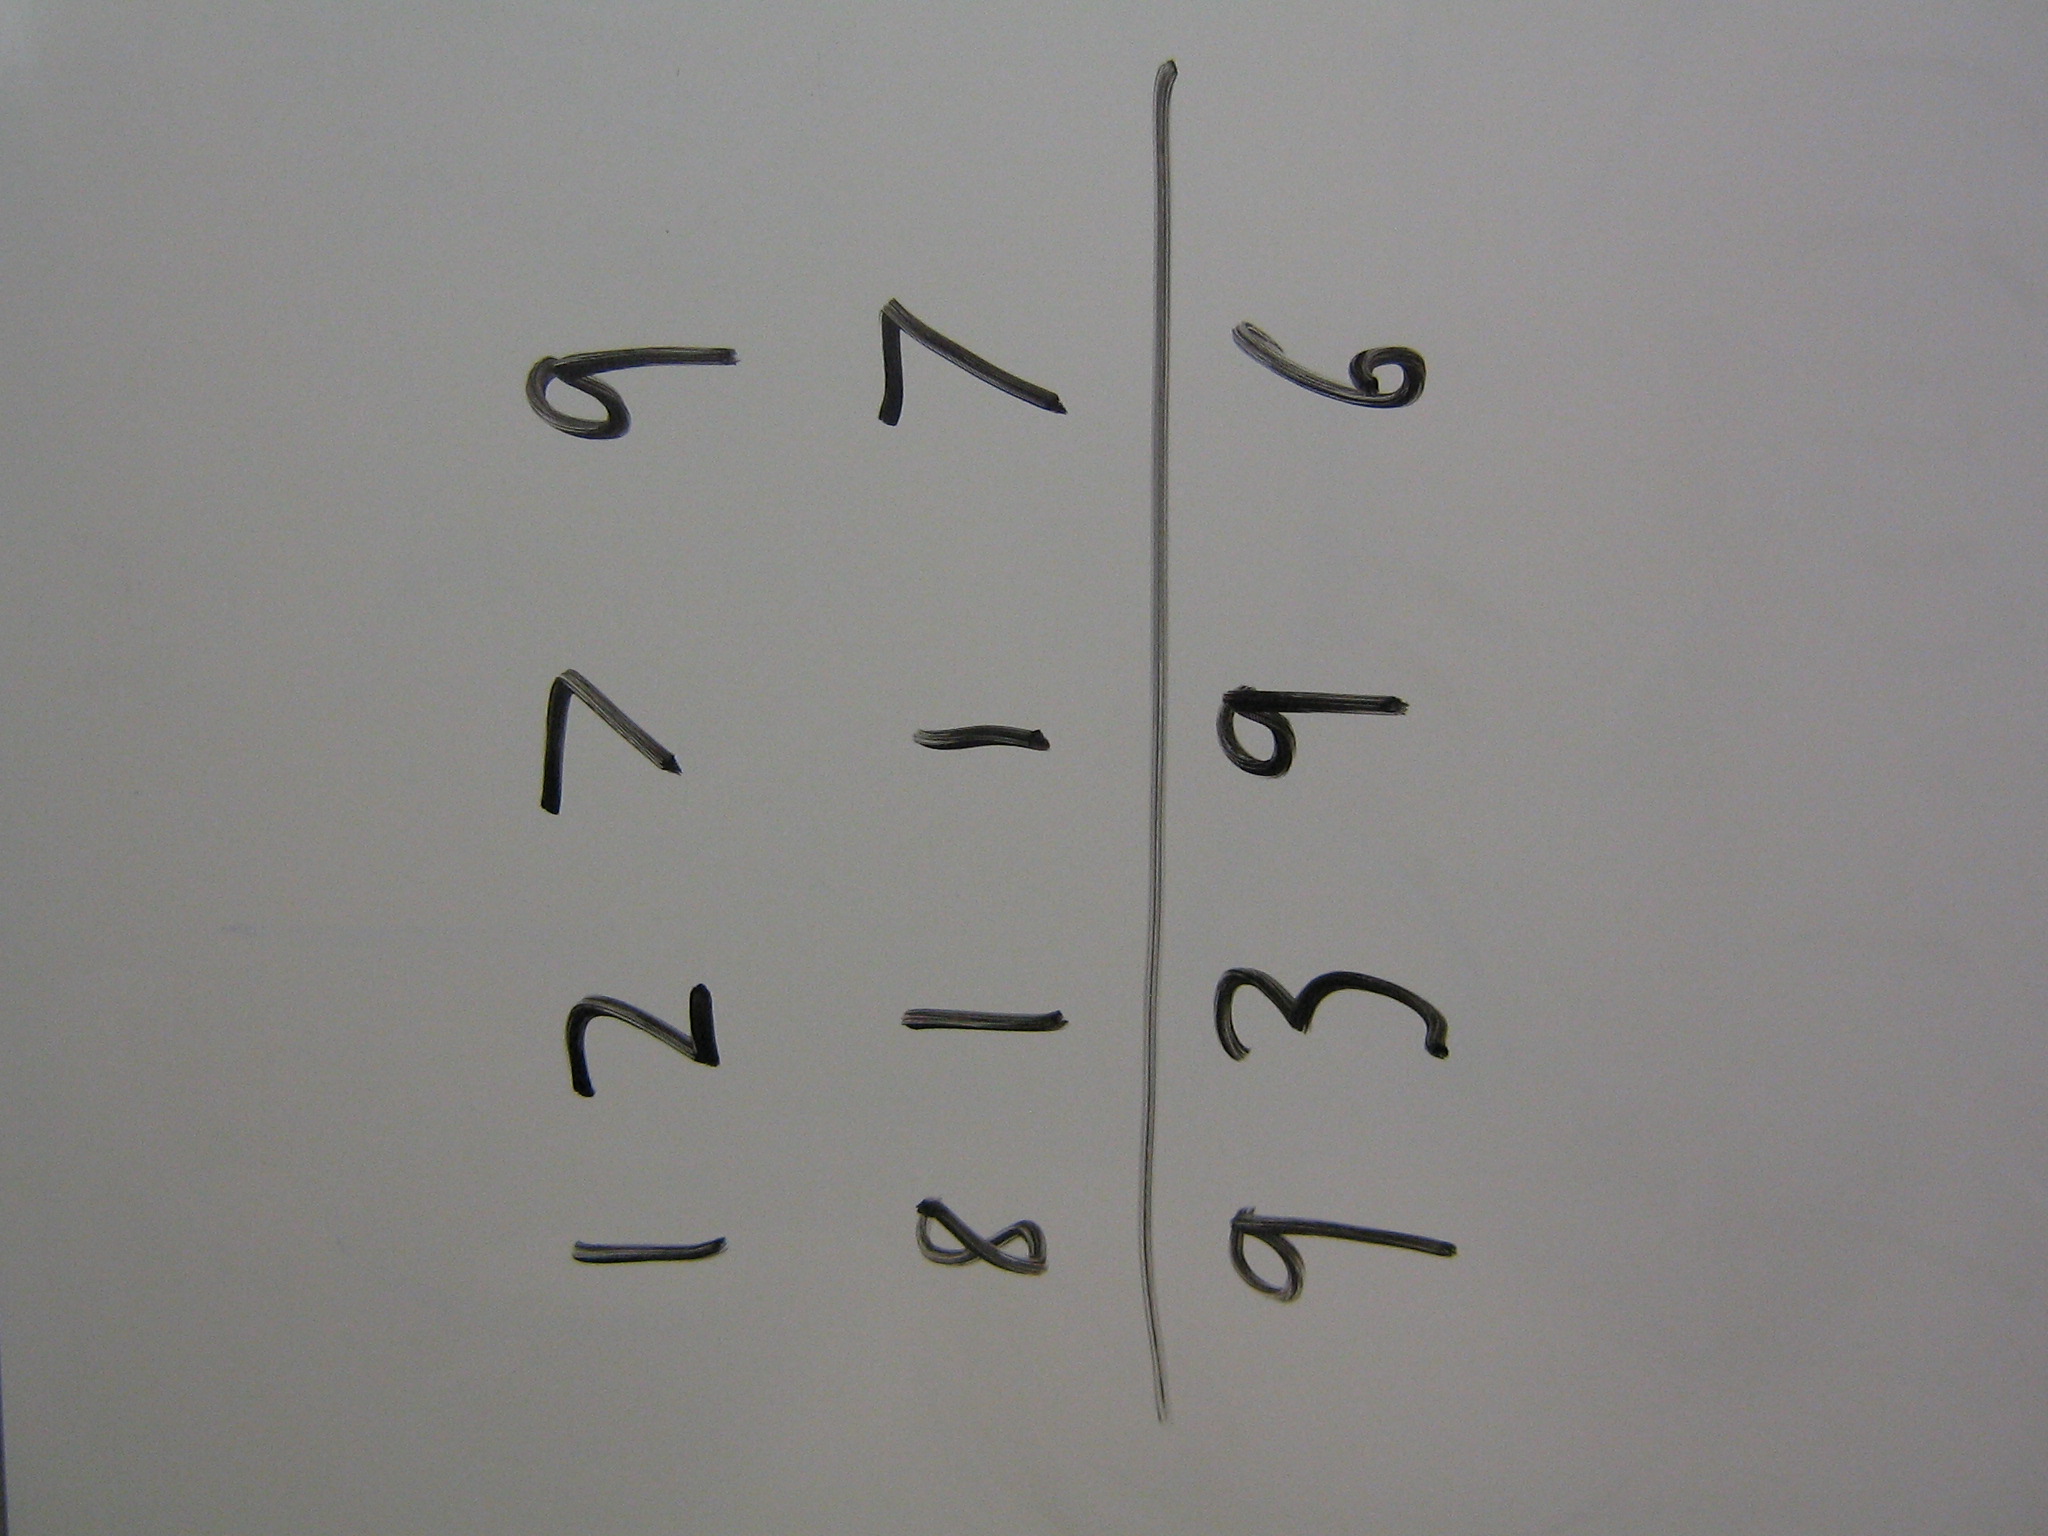 1 2 7 9
8 1 1 7
9 3 9 6